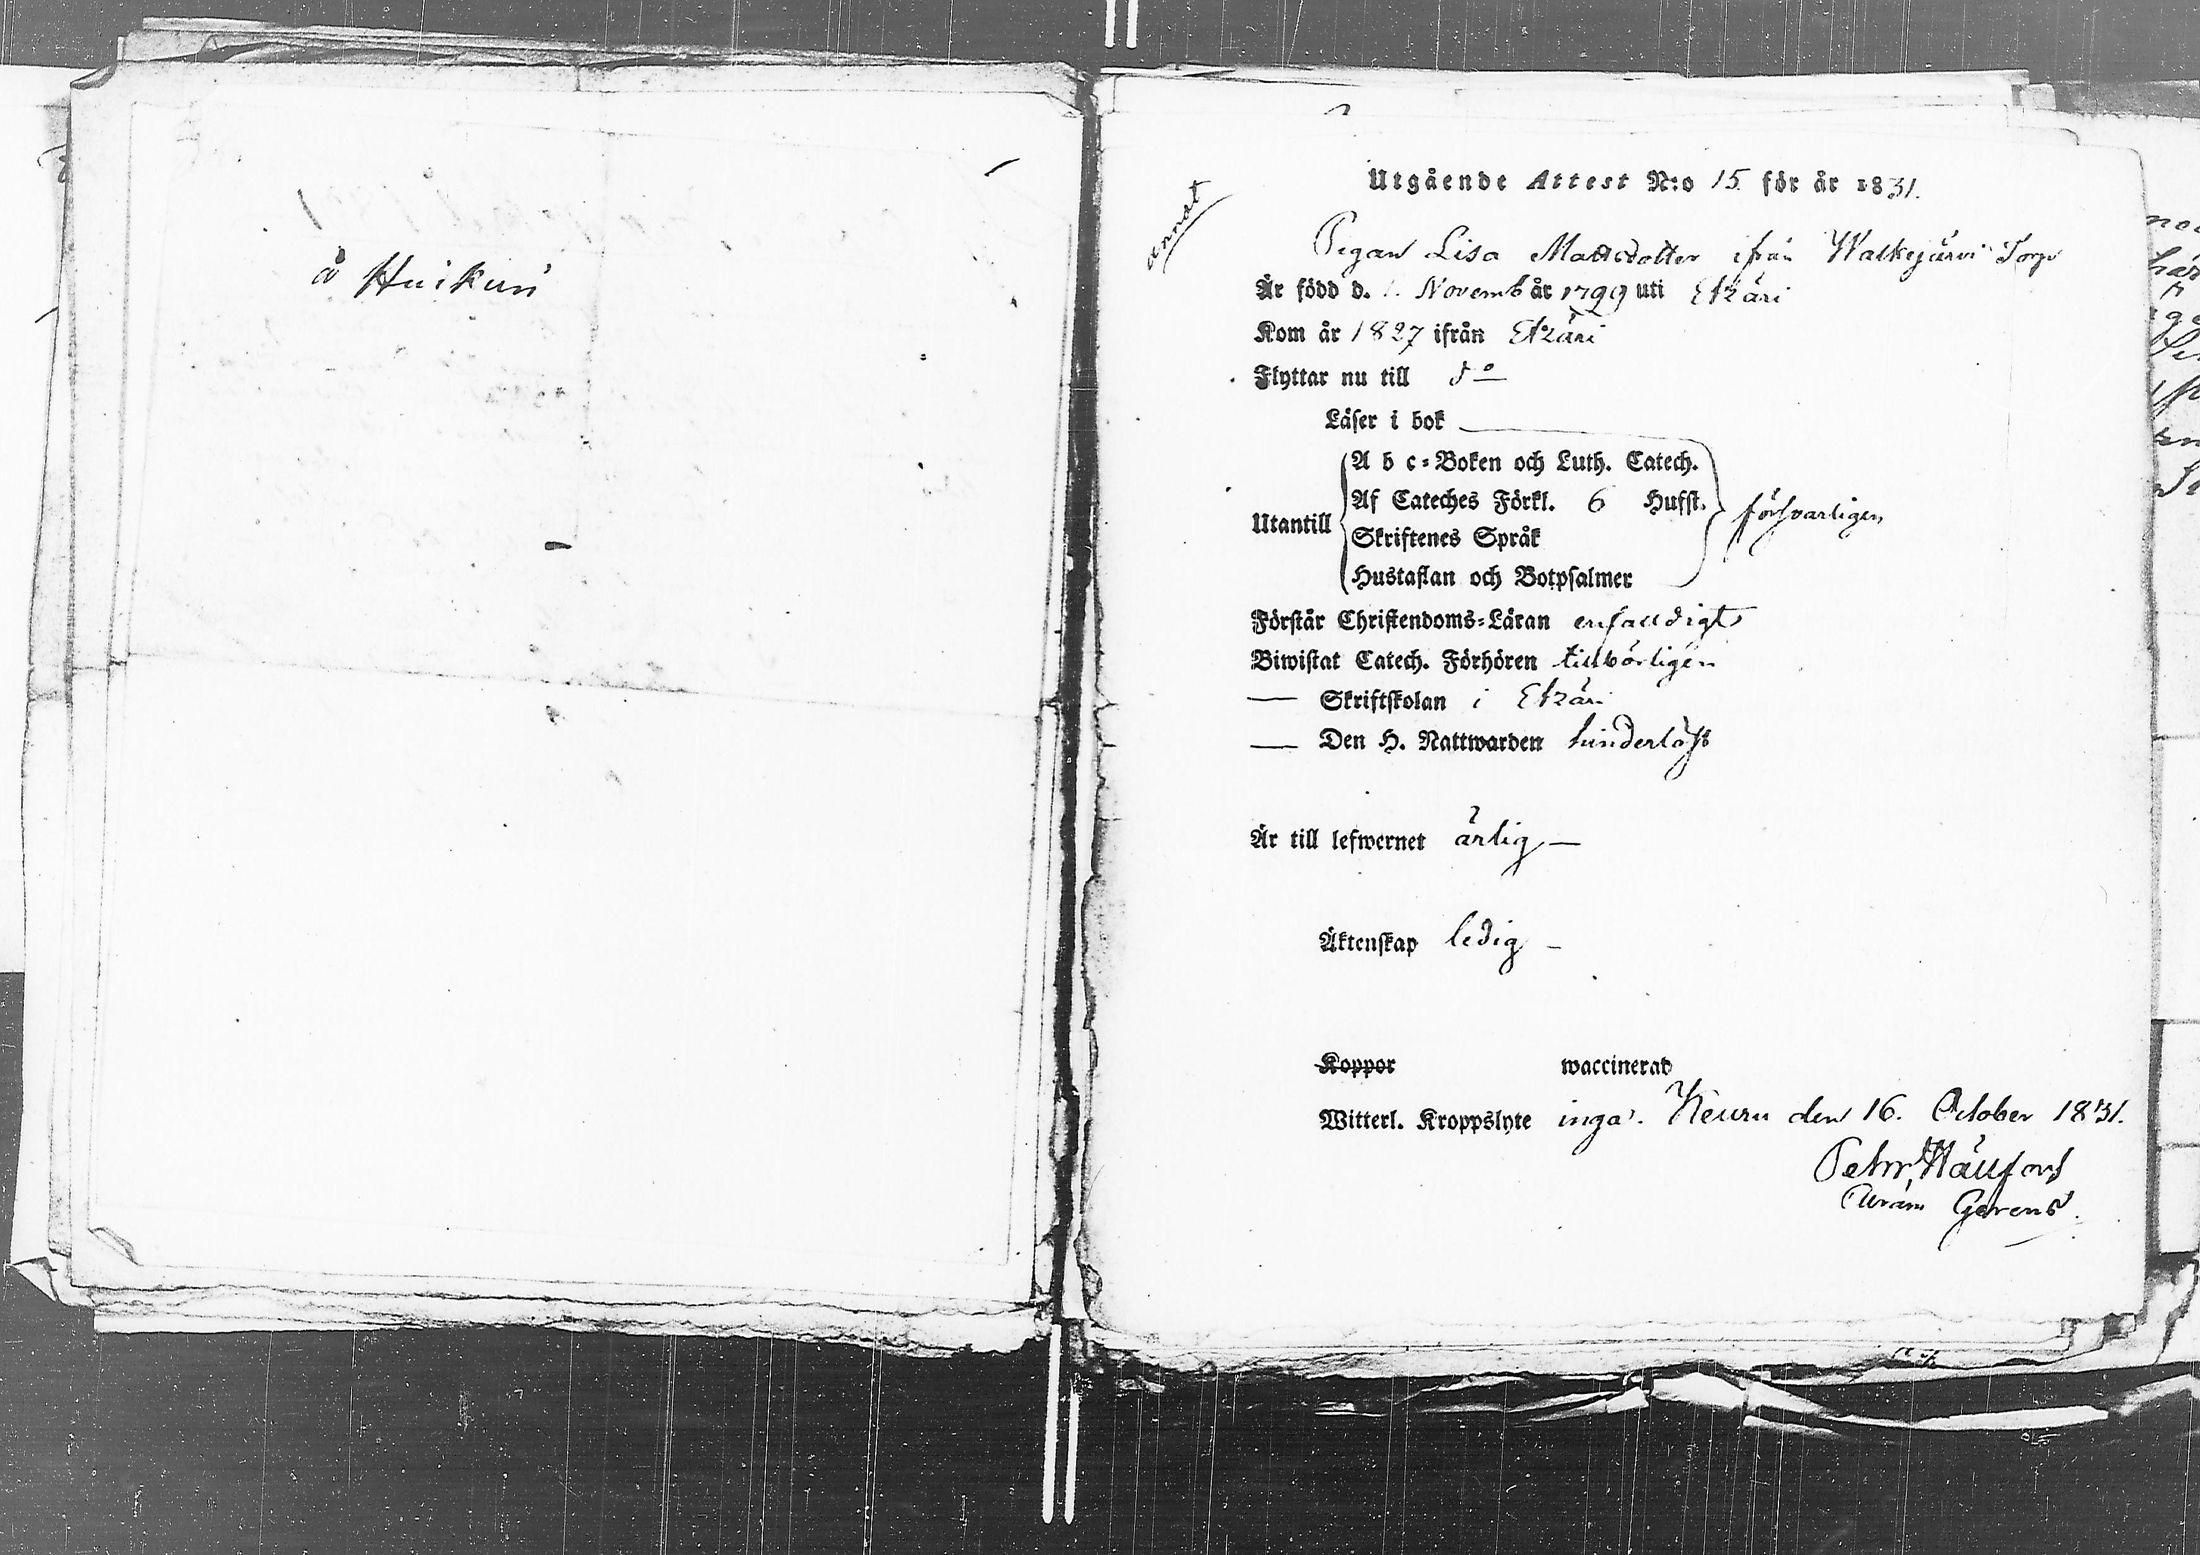 å Huikuri
annot
Utgående Attest N:o 15 för år 1831.
Pigan Lisa Mattsdotter ifrån Walkejärvi Torp
Är född d. 1. Novemb år 1799 uti Etzäri
Kom år 1827 ifrån Etzäri
Flyttar nu till do
Läser i bok
A b c-Boken och Luth. Catech.
Af Cateches Förkl. 6 Hufst.
Utantill försvarligen
Skriftenes Språk
Hustaflan och Botpsalmer
Förstår Christendoms-Läran enfaldigt
Biwistat Catech. Förhören tillbörligen
— Skriftskolan i Etzäri
— Den H. Nattwarden hinderlöst
Är till lefwernet ärlig —
Äktenskap ledig —
Koppor waccinerad
Witterl. Kroppslyte inga. Keuru den 16. October 1831.
Petter Hällfors